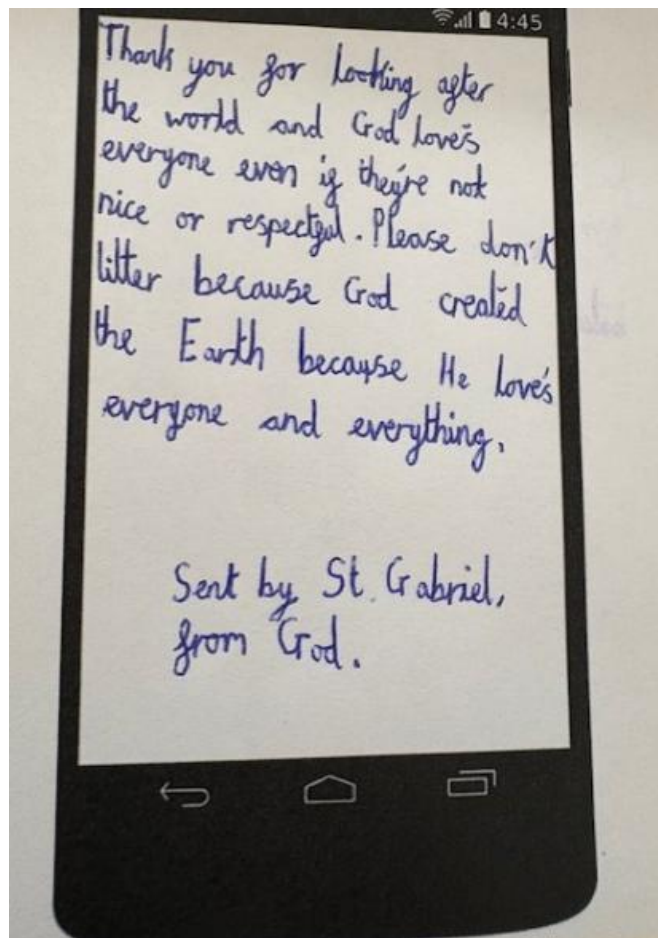 4:45
Thank you for looking after
the world and God love's
everyone even if they're not
nice or respectful. Please don't
litter because God created
the Earth because He love's
everyone and everything.
Sent by St. Gabriel,
from God.